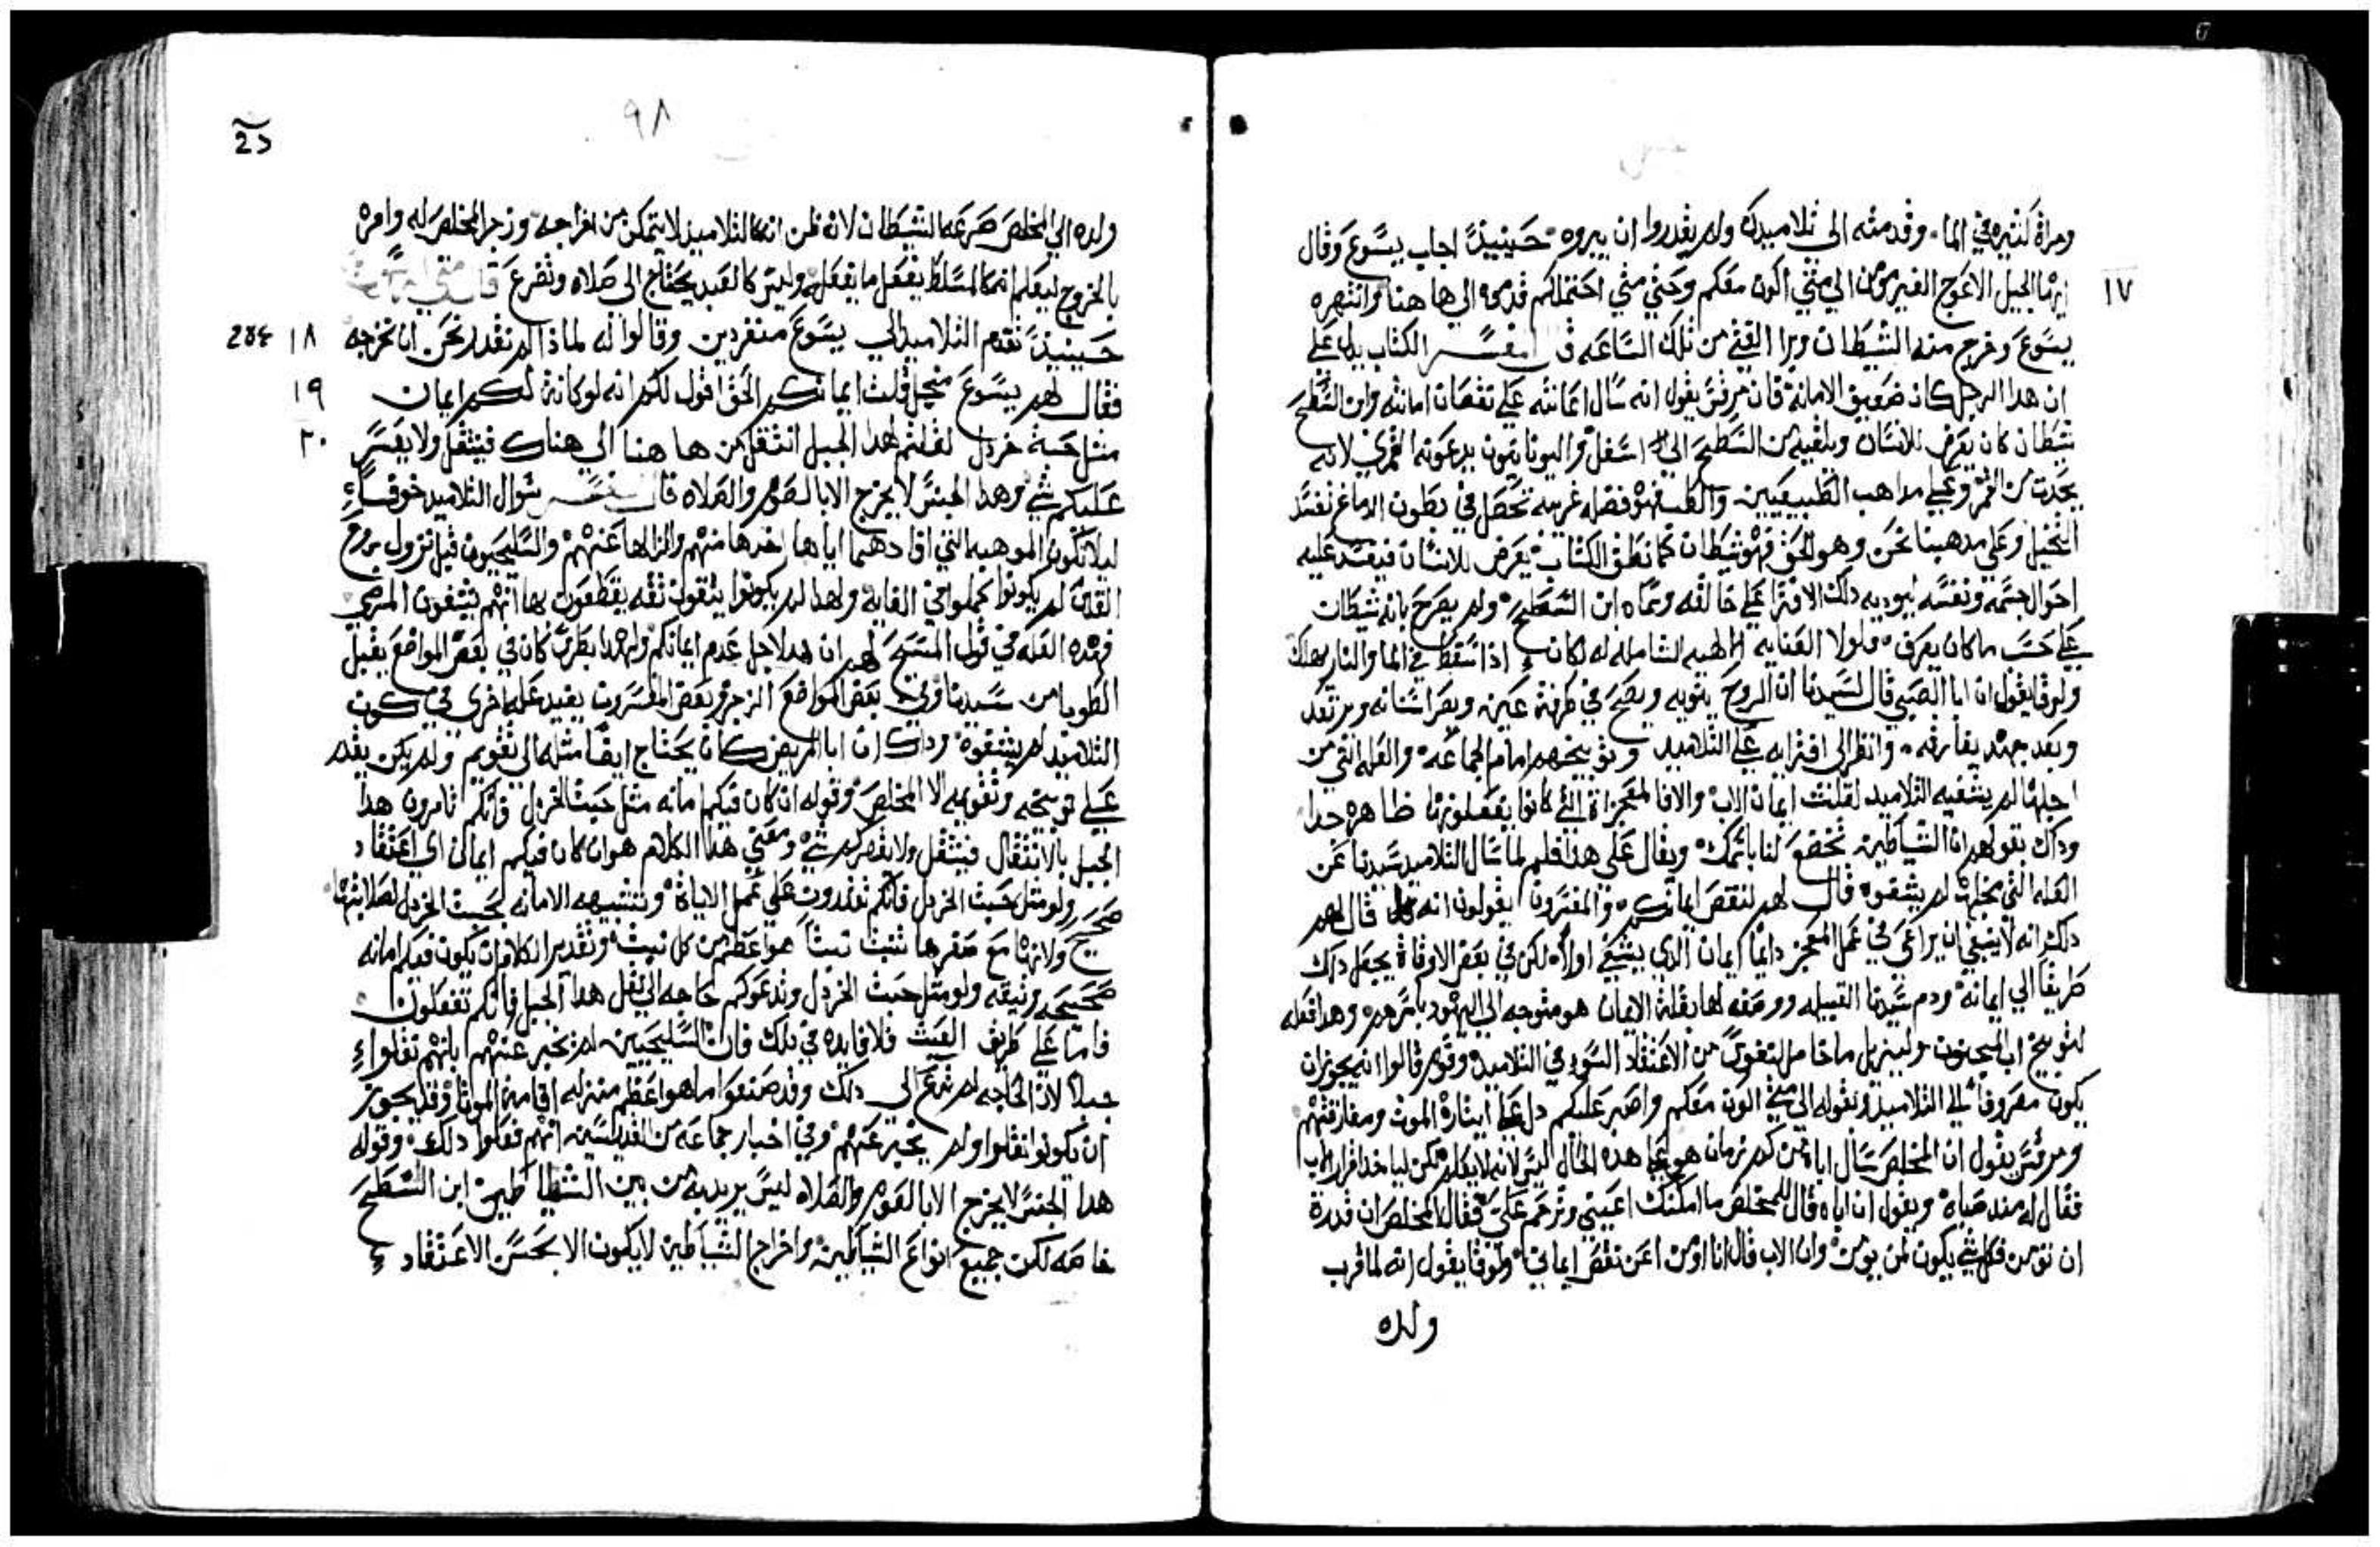 ومراة كثيره في الما. وقدمته الى تلاميدك ولم يقدروا ان يبروه. حينيدٍ اجاب يسوع وقال
١٧
ايها الجيل الاعوج الغير مومن الي متي اكون معكم وحتي متي احتملكم قدموه الي ها هنا وانتهره
يسوع وخرج منه الشيطان وبرا الفتي من تلك الساعه قال المفسر الكتاب يدل علي
ان هدا الرجل كان ضعيف الامانة فان مرقس يقول انه سال اعانته علي نقصان امانته وابن السطح
شيطان كان يعرض للانسان ويلقيه من السطح الي اسفل واليونانيون يدعونه القمري لانه
يحدت من القمر وعلي مداهب الطبيعيين والطب فهو فضله غريبه تحصل في بطون الدماغ تفسد
التخيل وعلي مدهبنا نحن وهو الحق فهو شيطان كما نطق الكتاب يعرض للانسان فيفسد عليه
احوال جسمه ونفسه ليوديه دلك الافترا علي خالقه وسماه ابن السطح ولم يصرح بانه شيطان
علي حسب ما كان يعرف. فلولا العنايه الالهيه الشامله له لكان اذا سقط في الما والنار يهلك
ولوقا يقول ان ابا الصبي قال لسيدنا ان الروح يتويه ويصيح في طرفة عين ويصر اسنانه ويرتعد
وبعد جهد يفارقه. وانظر الى افترايه علي التلاميد وتوبيخهم امام الجماعه. والعله التي من
اجلها لم يشفيه التلاميد لقلت ايمان الاب والا فالمعجزاة التي كانوا يفعلونها ظاهره جدا
وداك بقولهم ان الشياطين تخضع لنا باسمك. ويقال علي هدا فلم لما سال التلاميد سيدنا عن
العله التي من اجلها لم يشفوه قال لهم لنقص ايمانكم. والمفسرون يقولون انه قال لهم
دلك انه لا ينبغي ان يراعي في عمل المعجز دايما ايمان الدي يشفي اولا. لكن في بعض الاوقاة يجعل داك
طريقا الي ايمانه. ودم سيدنا القبيله ووصفه لها بقلة الايمان هو متوجه الي اليهود باسرهم. وهدا فعله
لتوبيخ اب المجنون وليزيل ما خامر النفوس من الاعتقاد السو في التلاميد. وقوم قالوا انه يجوز ان
يكون مصروفا الي التلاميد. وبقوله الي متي اكون معكم واصبر عليكم دل علي ايثاره الموت ومفارقتهم
ومرقس يقول ان المخلص سال اباه من كم زمان هو علي هده الحال ليس لانه لا يعلم لكن لياخد اقرار الاب
فقال له مند صباه. ويقول ان اباه قال للمخلص ما امكنك اعيني وترحم علي فقال المخلص ان قدرة
ان تومن فكل شي يكون لمن يومن. وان الاب قال انا اومن اعن نقص ايماني. ولوقا يقول انه لما قرب
ولده
٩٨
ولده الي المخلص صرعه الشيطان لانه ظن انه كالتلاميد لا يتمكن من اخراجه. وزجر المخلص له وامره
بالخروج ليعلم انه كالمسلط يفعل ما يفعله وليس كالعبد يحتاج الى صلاه وتضرع قال متي
حينيدٍ تقدم التلاميد الي يسوع منفردين وقالوا له لماذا لم نقدر نحن ان نخرجه
١٨
فقال لهم يسوع من اجل قلت ايمانكم الحق اقول لكم انه لو كانة لكم ايمان
١٩
مثل حبة خردل لقلتم لهدا الجبل انتقل من ها هنا الي هناك فينتقل ولا يعسر
٢٠
عليكم شي. وهدا الجنس لا يخرج الا بالصوم والصلاه قال المفسر سوال التلاميد خوفا
ليلا تكون الموهبه التي افادهما اياها اخدها منهم وازالها عنهم. والسليحيون قبل نزول روح
القدس لم يكونوا كملوا في الغاية ولهدا لم يكونوا يثقون ثقه يقطعون بها انهم يشفون المرضي
فهده العله في قول المسيح لهم ان هدا لاجل عدم ايمانكم. ولهدا بطرس كان في بعض المواضع يقبل
الطوبا من سيدنا وفي بعض المواضع الزجر وبعض المفسرون يفيد عله اخري في كون
التلاميد لم يشفوه. وداك ان ابا المريض كان يحتاج ايضا مثله الي تقويم ولم يكن يقدر
علي توبيخه وتقويمه الا المخلص. وقوله ان كان فيكم امانه مثل حبت الخردل فانكم تامرون هدا
الجبل بالانتقال فينتقل ولا يقهركم شي. ومعني هدا الكلام هو ان كان فيكم ايمان اي اعتقاد
صحيح ولو مثل حبت الخردل فانكم تقدرون علي عمل الاياة. وتشبيهه الامانه بحبت الخردل لصلابتها
ولانها مع صغرها تنبت نبتا هو اعظم من كل نبت. وتقدير الكلام ان يكون فيكم امانه
صحيحه وثيقه ولو مثل حبت الخردل وتدعوكم حاجه الي نقل هدا الجبل فانكم تفعلون
فاما علي طريق العبث فلا فايده في دلك فان السليحيين لم نخبر عنهم بانهم نقلوا
جبلا لان الحاجه لم تدع الى دلك وقد صنعوا ما هو اعظم منزله اقامة الموتا وقد يجوز
ان يكونوا نقلوا ولم يخبر عنهم. وفي اخبار جماعه من القديسين انهم فعلوا دلك. وقوله
هدا الجنس لا يخرج الا بالصوم والصلاه ليس يريد به من بين الشياطين ابن السطح
خاصه لكن جميع انواع الشياطين. واخراج الشياطين لا يكون الا بحسن الاعتقاد